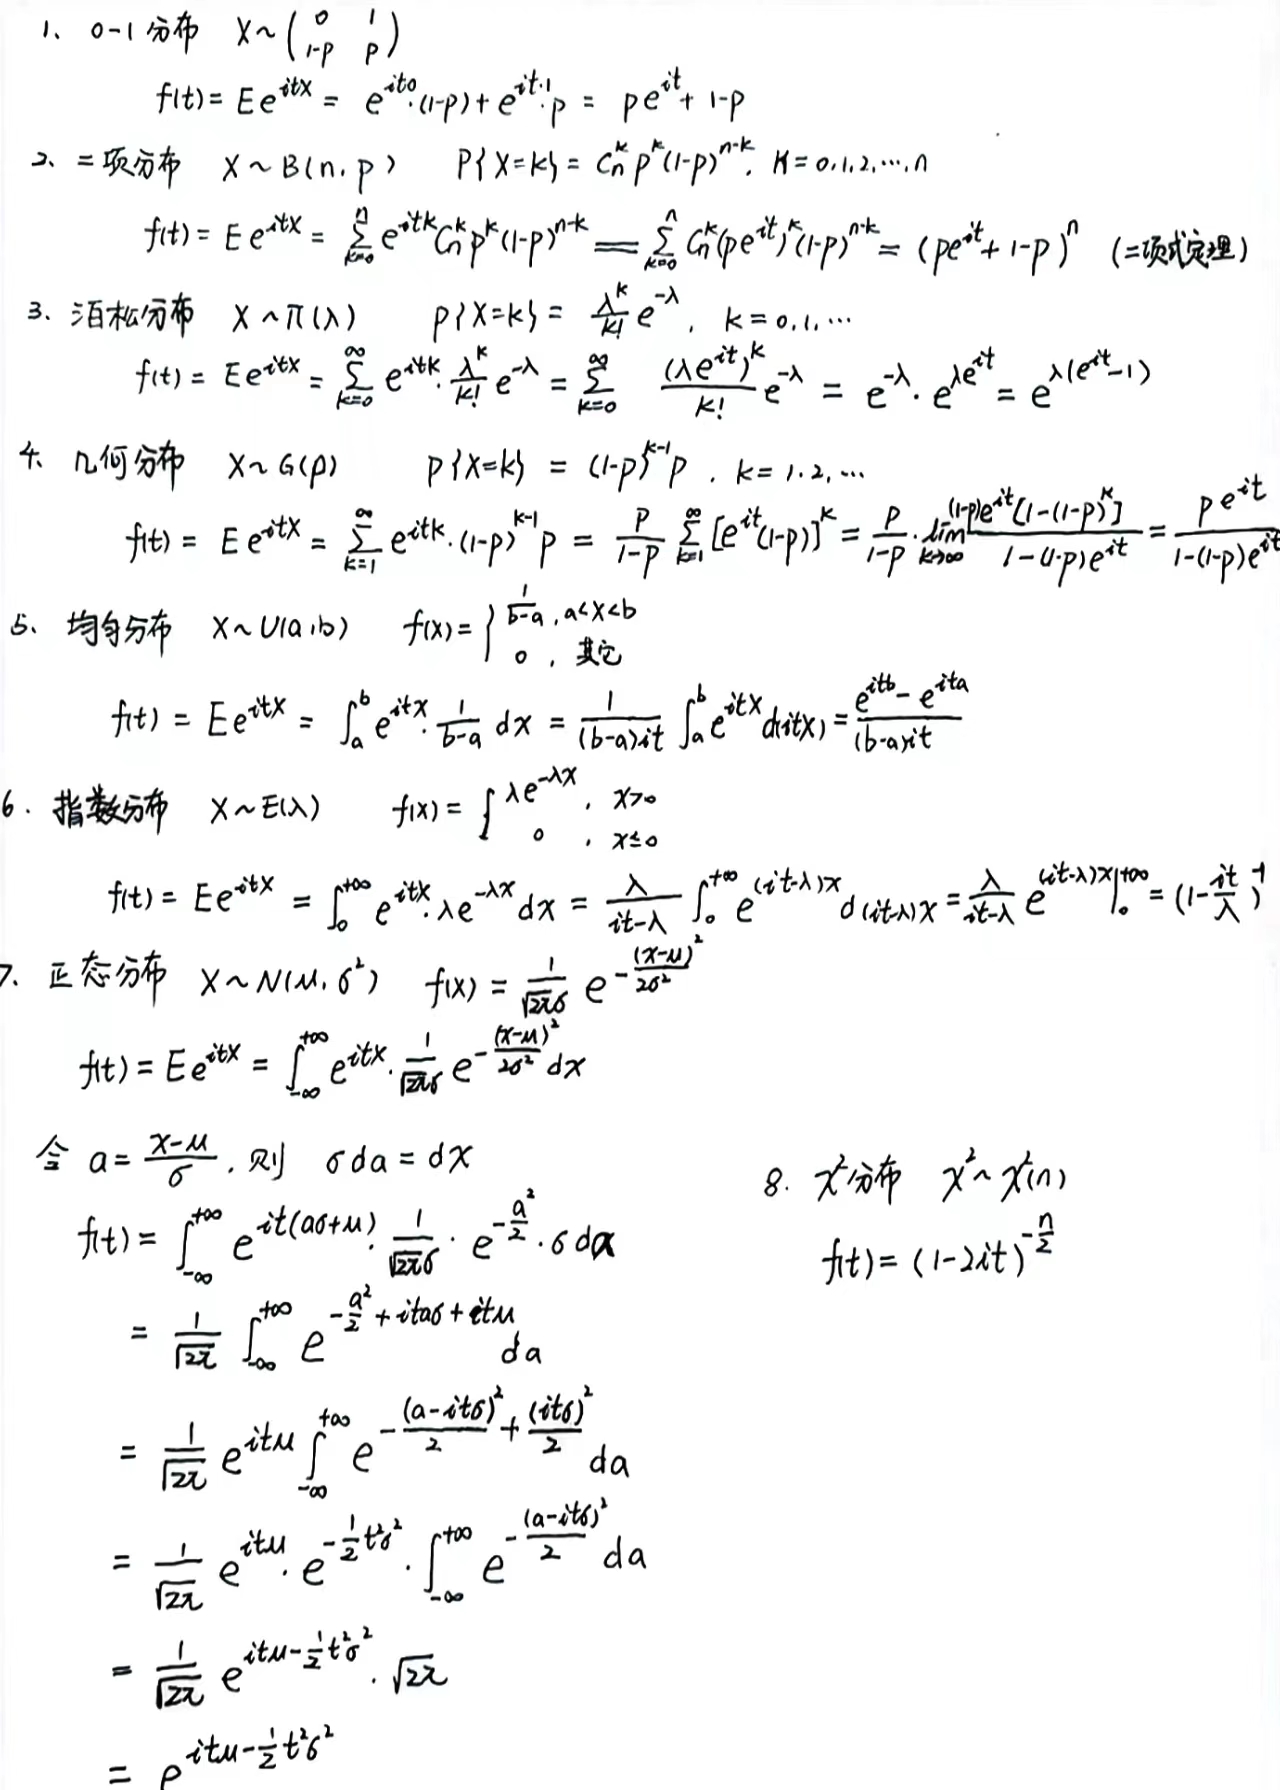 1、 0-1分布 X~(0 1 / 1-p p)
f(t)= Ee^{itX} = e^{it0}·(1-p)+e^{it·1}·p = pe^{it}+1-p
2、二项分布 X~B(n,p) P{X=k}= C_n^k p^k(1-p)^{n-k}, k=0,1,2,…,n
f(t)= Ee^{itX} = ∑_{k=0}^{n} e^{itk}C_n^k p^k(1-p)^{n-k} = ∑_{k=0}^{n} C_n^k(pe^{it})^k(1-p)^{n-k} = (pe^{it}+1-p)^n (二项式定理)
3、泊松分布 X~π(λ) P{X=k}= λ^k/k! e^{-λ}, k=0,1,…
f(t)= Ee^{itX} = ∑_{k=0}^{∞} e^{itk}·λ^k/k! e^{-λ} = ∑_{k=0}^{∞} (λe^{it})^k/k! e^{-λ} = e^{-λ}·e^{λe^{it}} = e^{λ(e^{it}-1)}
4、几何分布 X~G(p) P{X=k} = (1-p)^{k-1}p, k=1,2,…
f(t)= Ee^{itX} = ∑_{k=1}^{∞} e^{itk}·(1-p)^{k-1}p = p/(1-p) ∑_{k=1}^{∞} [e^{it}(1-p)]^k = p/(1-p)·lim_{k→∞} (1-p)e^{it}[1-(1-p)^k]/(1-(1-p)e^{it}) = pe^{it}/(1-(1-p)e^{it})
5、均匀分布 X~U(a,b) f(x)={1/(b-a), a<x<b
0, 其它
f(t)= Ee^{itX} = ∫_a^b e^{itx}·1/(b-a) dx = 1/((b-a)it) ∫_a^b e^{itx}d(itx) = (e^{itb}-e^{ita})/((b-a)it)
6. 指数分布 X~E(λ) f(x)={λe^{-λx}, x>0
0, x≤0
f(t)= Ee^{itX} = ∫_0^{+∞} e^{itx}·λe^{-λx}dx = λ/(it-λ) ∫_0^{+∞} e^{(it-λ)x}d(it-λ)x = λ/(it-λ) e^{(it-λ)x}|_0^{+∞} = (1-it/λ)^{-1}
7、正态分布 X~N(μ,σ²) f(x)= 1/(√2π σ) e^{-(x-μ)²/2σ²}
f(t)= Ee^{itX} = ∫_{-∞}^{+∞} e^{itx}·1/(√2π σ) e^{-(x-μ)²/2σ²}dx
令 a=(x-μ)/σ, 则 σda=dx
f(t)= ∫_{-∞}^{+∞} e^{it(aσ+μ)}·1/(√2π σ)·e^{-a²/2}·σda
= 1/√2π ∫_{-∞}^{+∞} e^{-a²/2+itaσ+itμ}da
= 1/√2π e^{itμ}∫_{-∞}^{+∞} e^{-(a-itσ)²/2+(itσ)²/2}da
= 1/√2π e^{itμ}·e^{-1/2 t²σ²}·∫_{-∞}^{+∞} e^{-(a-itσ)²/2}da
= 1/√2π e^{itμ-1/2 t²σ²}·√2π
= e^{itμ-1/2 t²σ²}
8. χ²分布 χ²~χ²(n)
f(t)= (1-2it)^{-n/2}